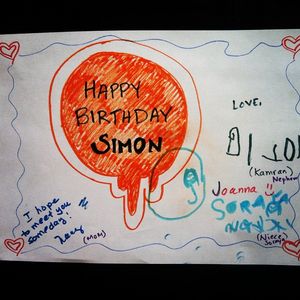 HAPPY
BIRTHDAY
SIMON
LOVE,
(Kamran)
Nephew
Joanna
SORAYA
I hope
to meet you
someday!
(MOM)
(Niece